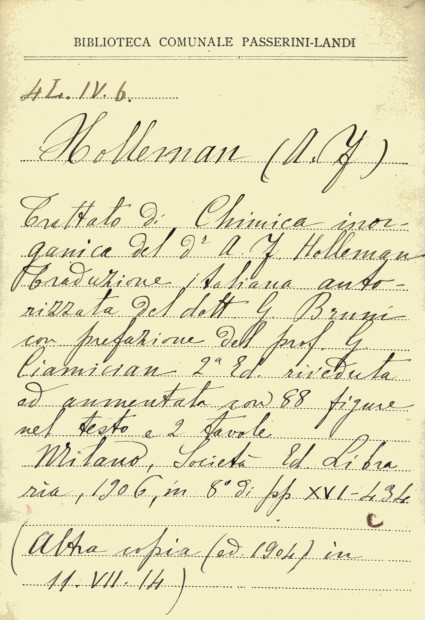 BIBLIOTECA COMUNALE PASSERINI-LANDI
4L.IV.6.
Holleman (A. F)
Trattato di Chimica inor-
ganica del dr A F Holleman
Traduzione italiana auto-
rizzata del dott G Bruni
con prefazione del prof. G.
Ciamician 2a Ed. riveduta
ed aumentata con 88 figure
nel testo e 2 tavole
Milano, Società Ed. Libra
ria, 1906, in 8° di pp XVI-434
C
(Altra copia (ed. 1904) in
11. VII. 14)